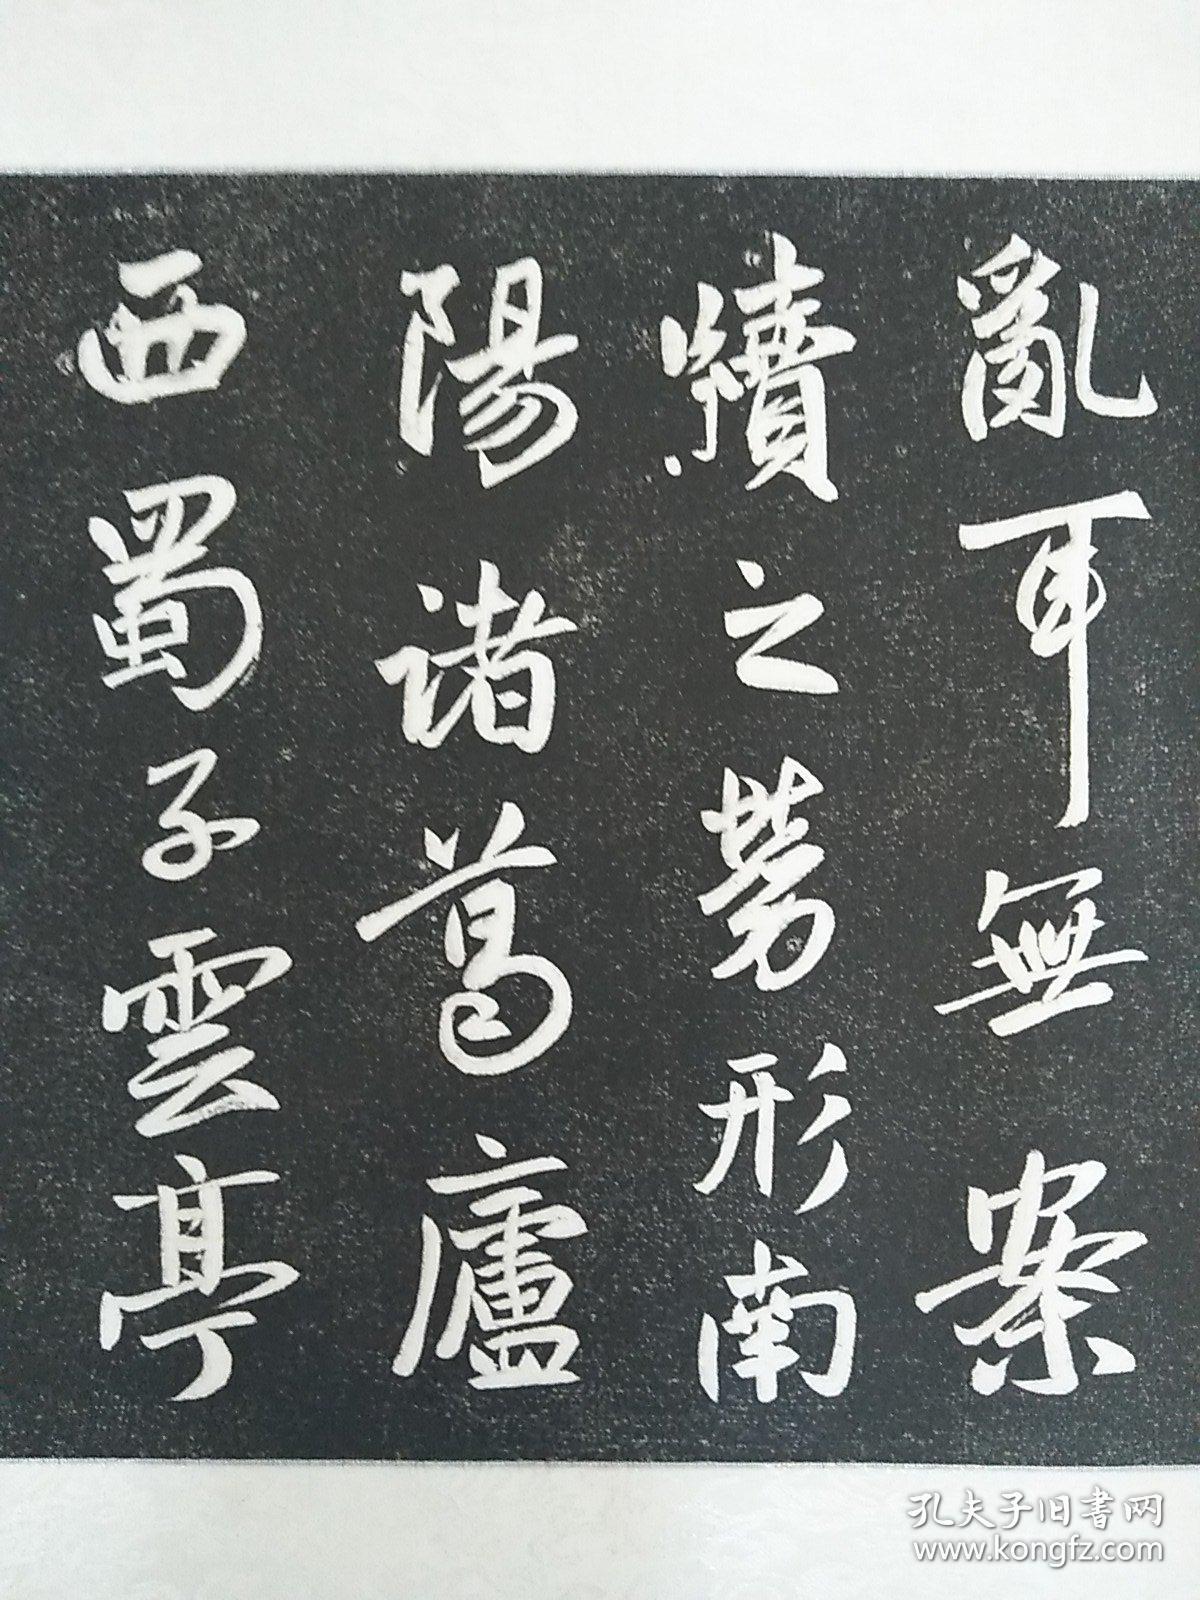 亂耳無案
牘之勞形南
陽諸葛廬
西蜀子雲亭
孔夫子旧书网
www.kongfz.com